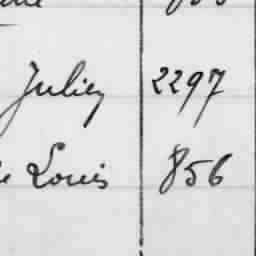 Julien 2297
Louis 856